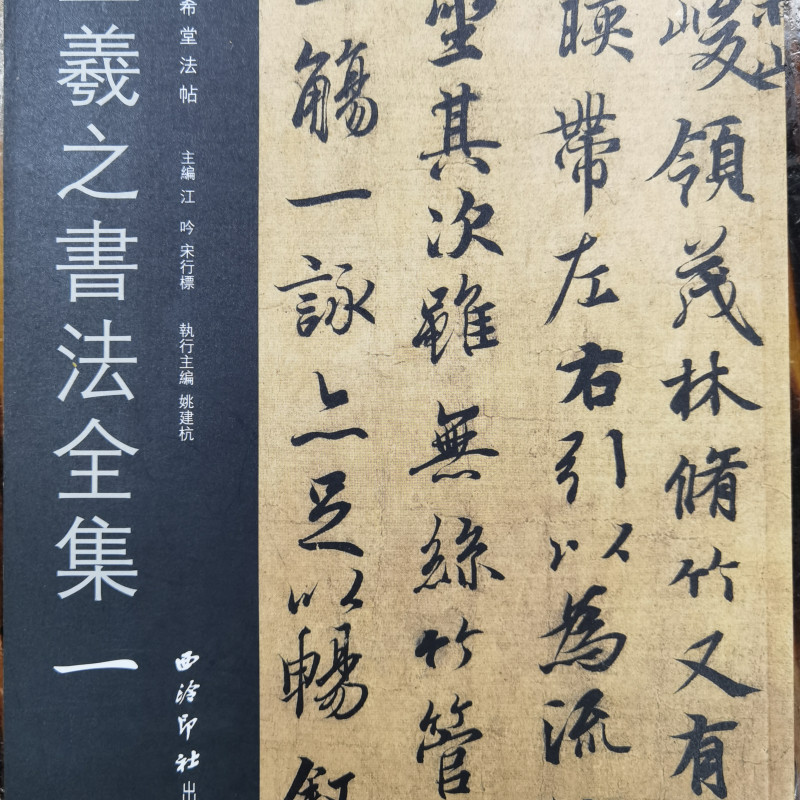 山
峻領茂林脩竹又有
暎帶左右引以為流
坐其次雖無絲竹管
觴一詠亦足以暢
希堂法帖
主編 江 吟 宋行標
執行主編 姚建杭
西泠印社出
羲之書法全集 一